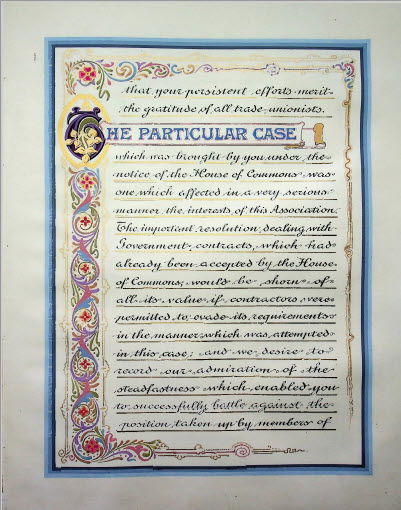 that your persistent efforts merit
the gratitude of all trade unionists.
THE PARTICULAR CASE
which was brought by you under the
notice of the House of Commons was
one which affected in a very serious
manner the interests of this Association.
The important resolution dealing with
Government contracts, which had
already been accepted by the House
of Commons; would be shorn of
all its value if contractors were
permitted to evade its requirements
in the manner which was attempted
in this case; and we desire to
record our admiration of the
steadfastness which enabled you
to successfully battle against the
position taken up by members of